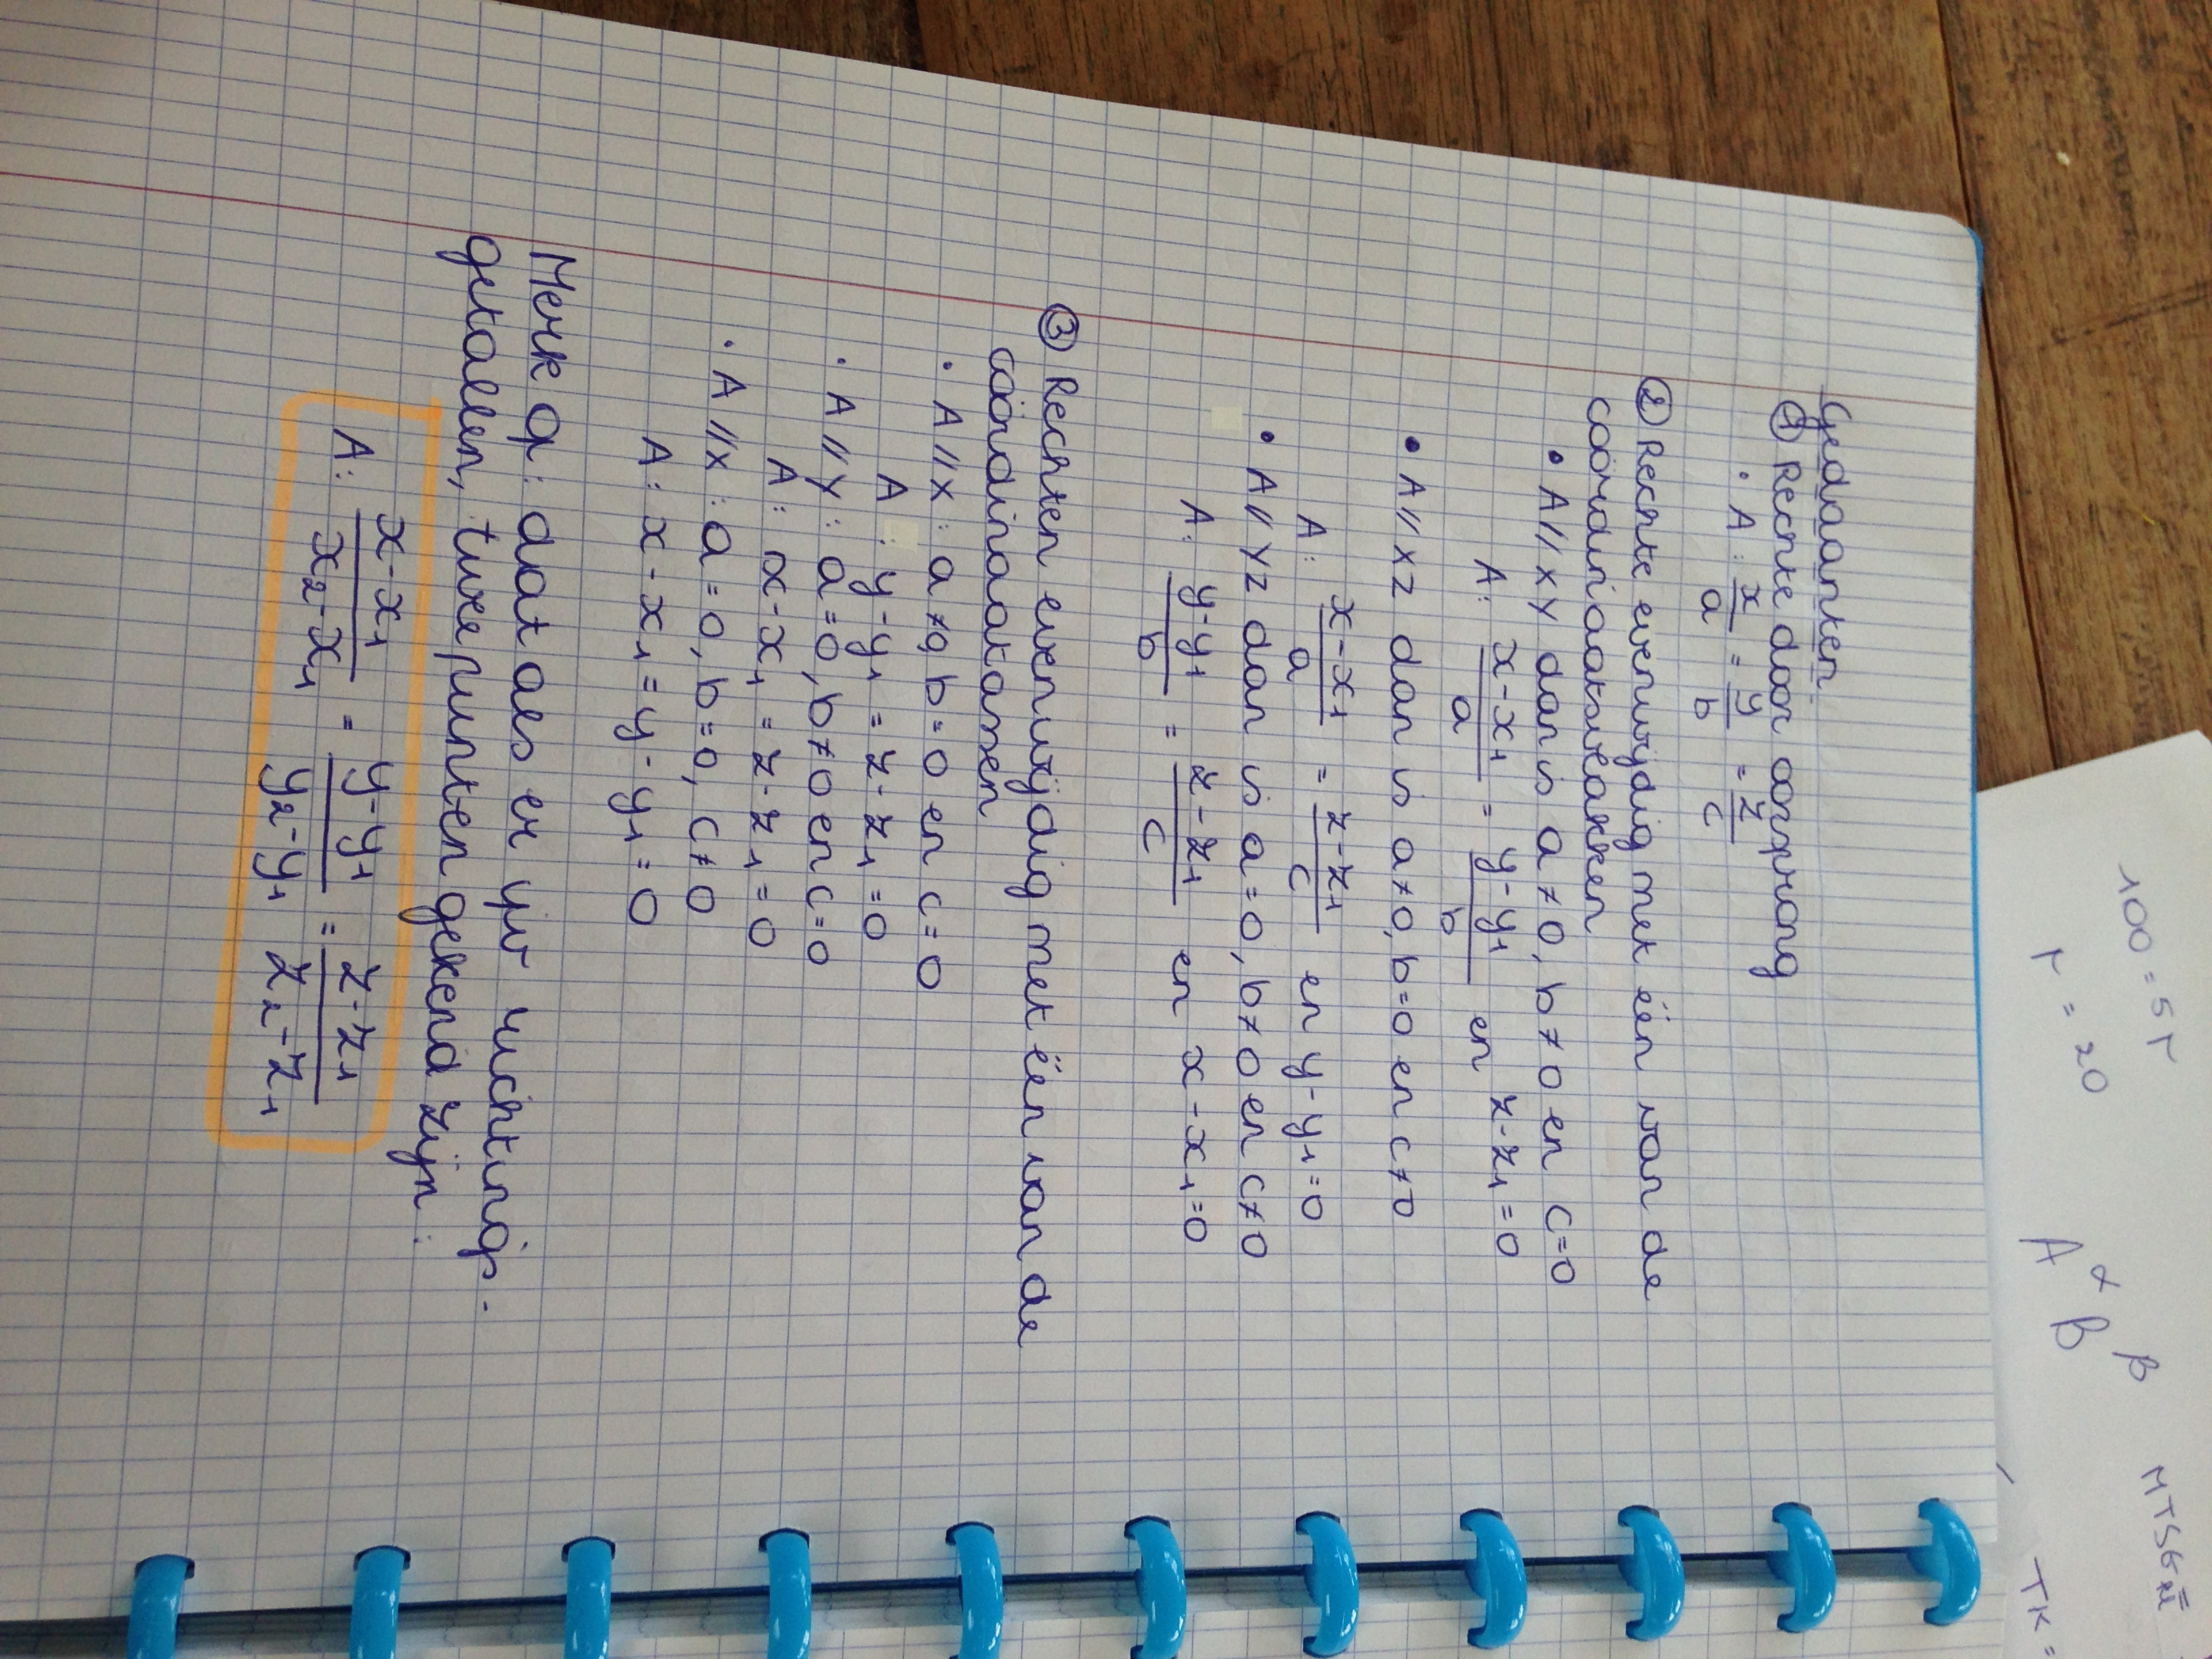 Gedaanten:
① Rechte door oorsprong
· A: x/a = y/b = z/c
② Rechte evenwijdig met ëën van de
coördinaatsvlakken
• A // XY dan is a ≠ 0, b ≠ 0 en c = 0
A: x - x₁/a = y - y₁/b en z - z₁ = 0
• A // XZ dan is a ≠ 0, b = 0 en c ≠ 0
A: x - x₁/a = z - z₁/c en y - y₁ = 0
• A // YZ dan is a = 0, b ≠ 0 en c ≠ 0
A: y - y₁/b = z - z₁/c en x - x₁ = 0
③ Rechten evenwijdig met ëën van de
coördinaatassen
· A // X: a ≠ 0, b = 0 en c = 0
A: y - y₁ = z - z₁ = 0
· A // Y: a = 0, b ≠ 0 en c = 0
A: x - x₁ = z - z₁ = 0
· A // X: a = 0, b = 0, c ≠ 0
A: x - x₁ = y - y₁ = 0
Merk op: dat als er ipv richtings-
getallen, twee punten gekend zijn:
A: x - x₁/x₂ - x₁ = y - y₁/y₂ - y₁ = z - z₁/z₂ - z₁
100 = 5r
r = 20
A α B β
TK =